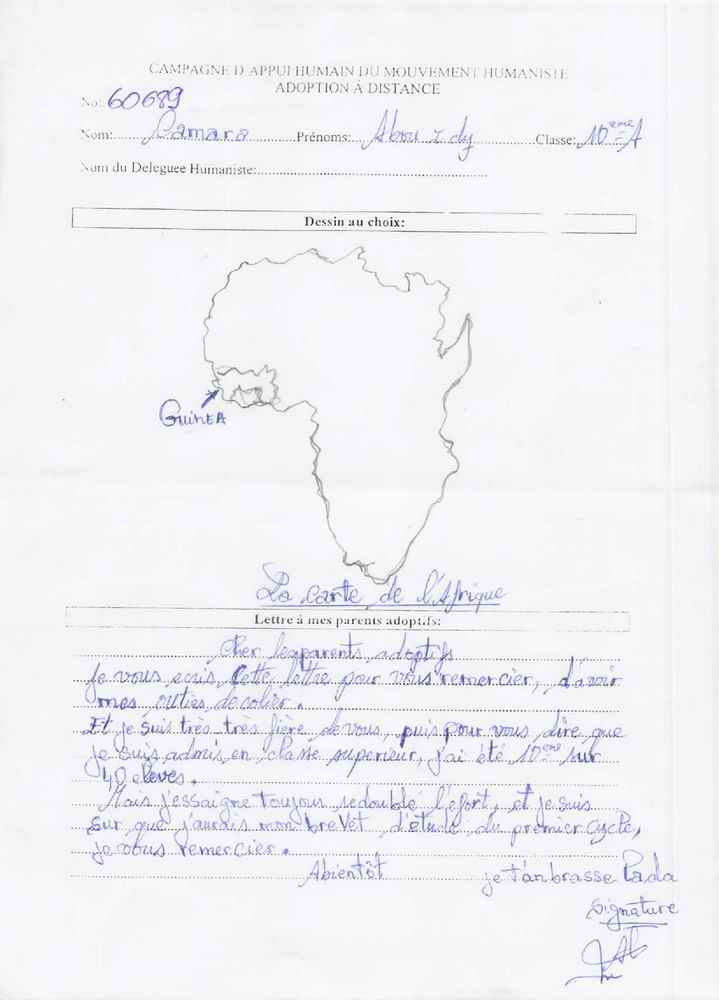 CAMPAGNE D'APPUI HUMAIN DU MOUVEMENT HUMANISTE
ADOPTION À DISTANCE
No: 60689
Nom: Camara Prénoms: Abou Classe: 10ème A
Nom du Deleguee Humaniste:
Dessin au choix:
GUINEA
La carte de l'Afrique
Lettre à mes parents adoptifs:
Cher les parents adoptifs
Je vous ecris Cette lettre pour vous remercier, d'avoir
mes outies decolier.
Et je suis très très fière de vous, puis pour vous dire que
je suis admis en classe superieur, j'ai été 10ème sur
40 eleves.
Mais j'essaigne toujous redoublé l'efort, et je suis
sur que j'aurais mon breVet d'étude du premier cycle,
Je vous remercier.
Abientôt je t'anbrasse
signature